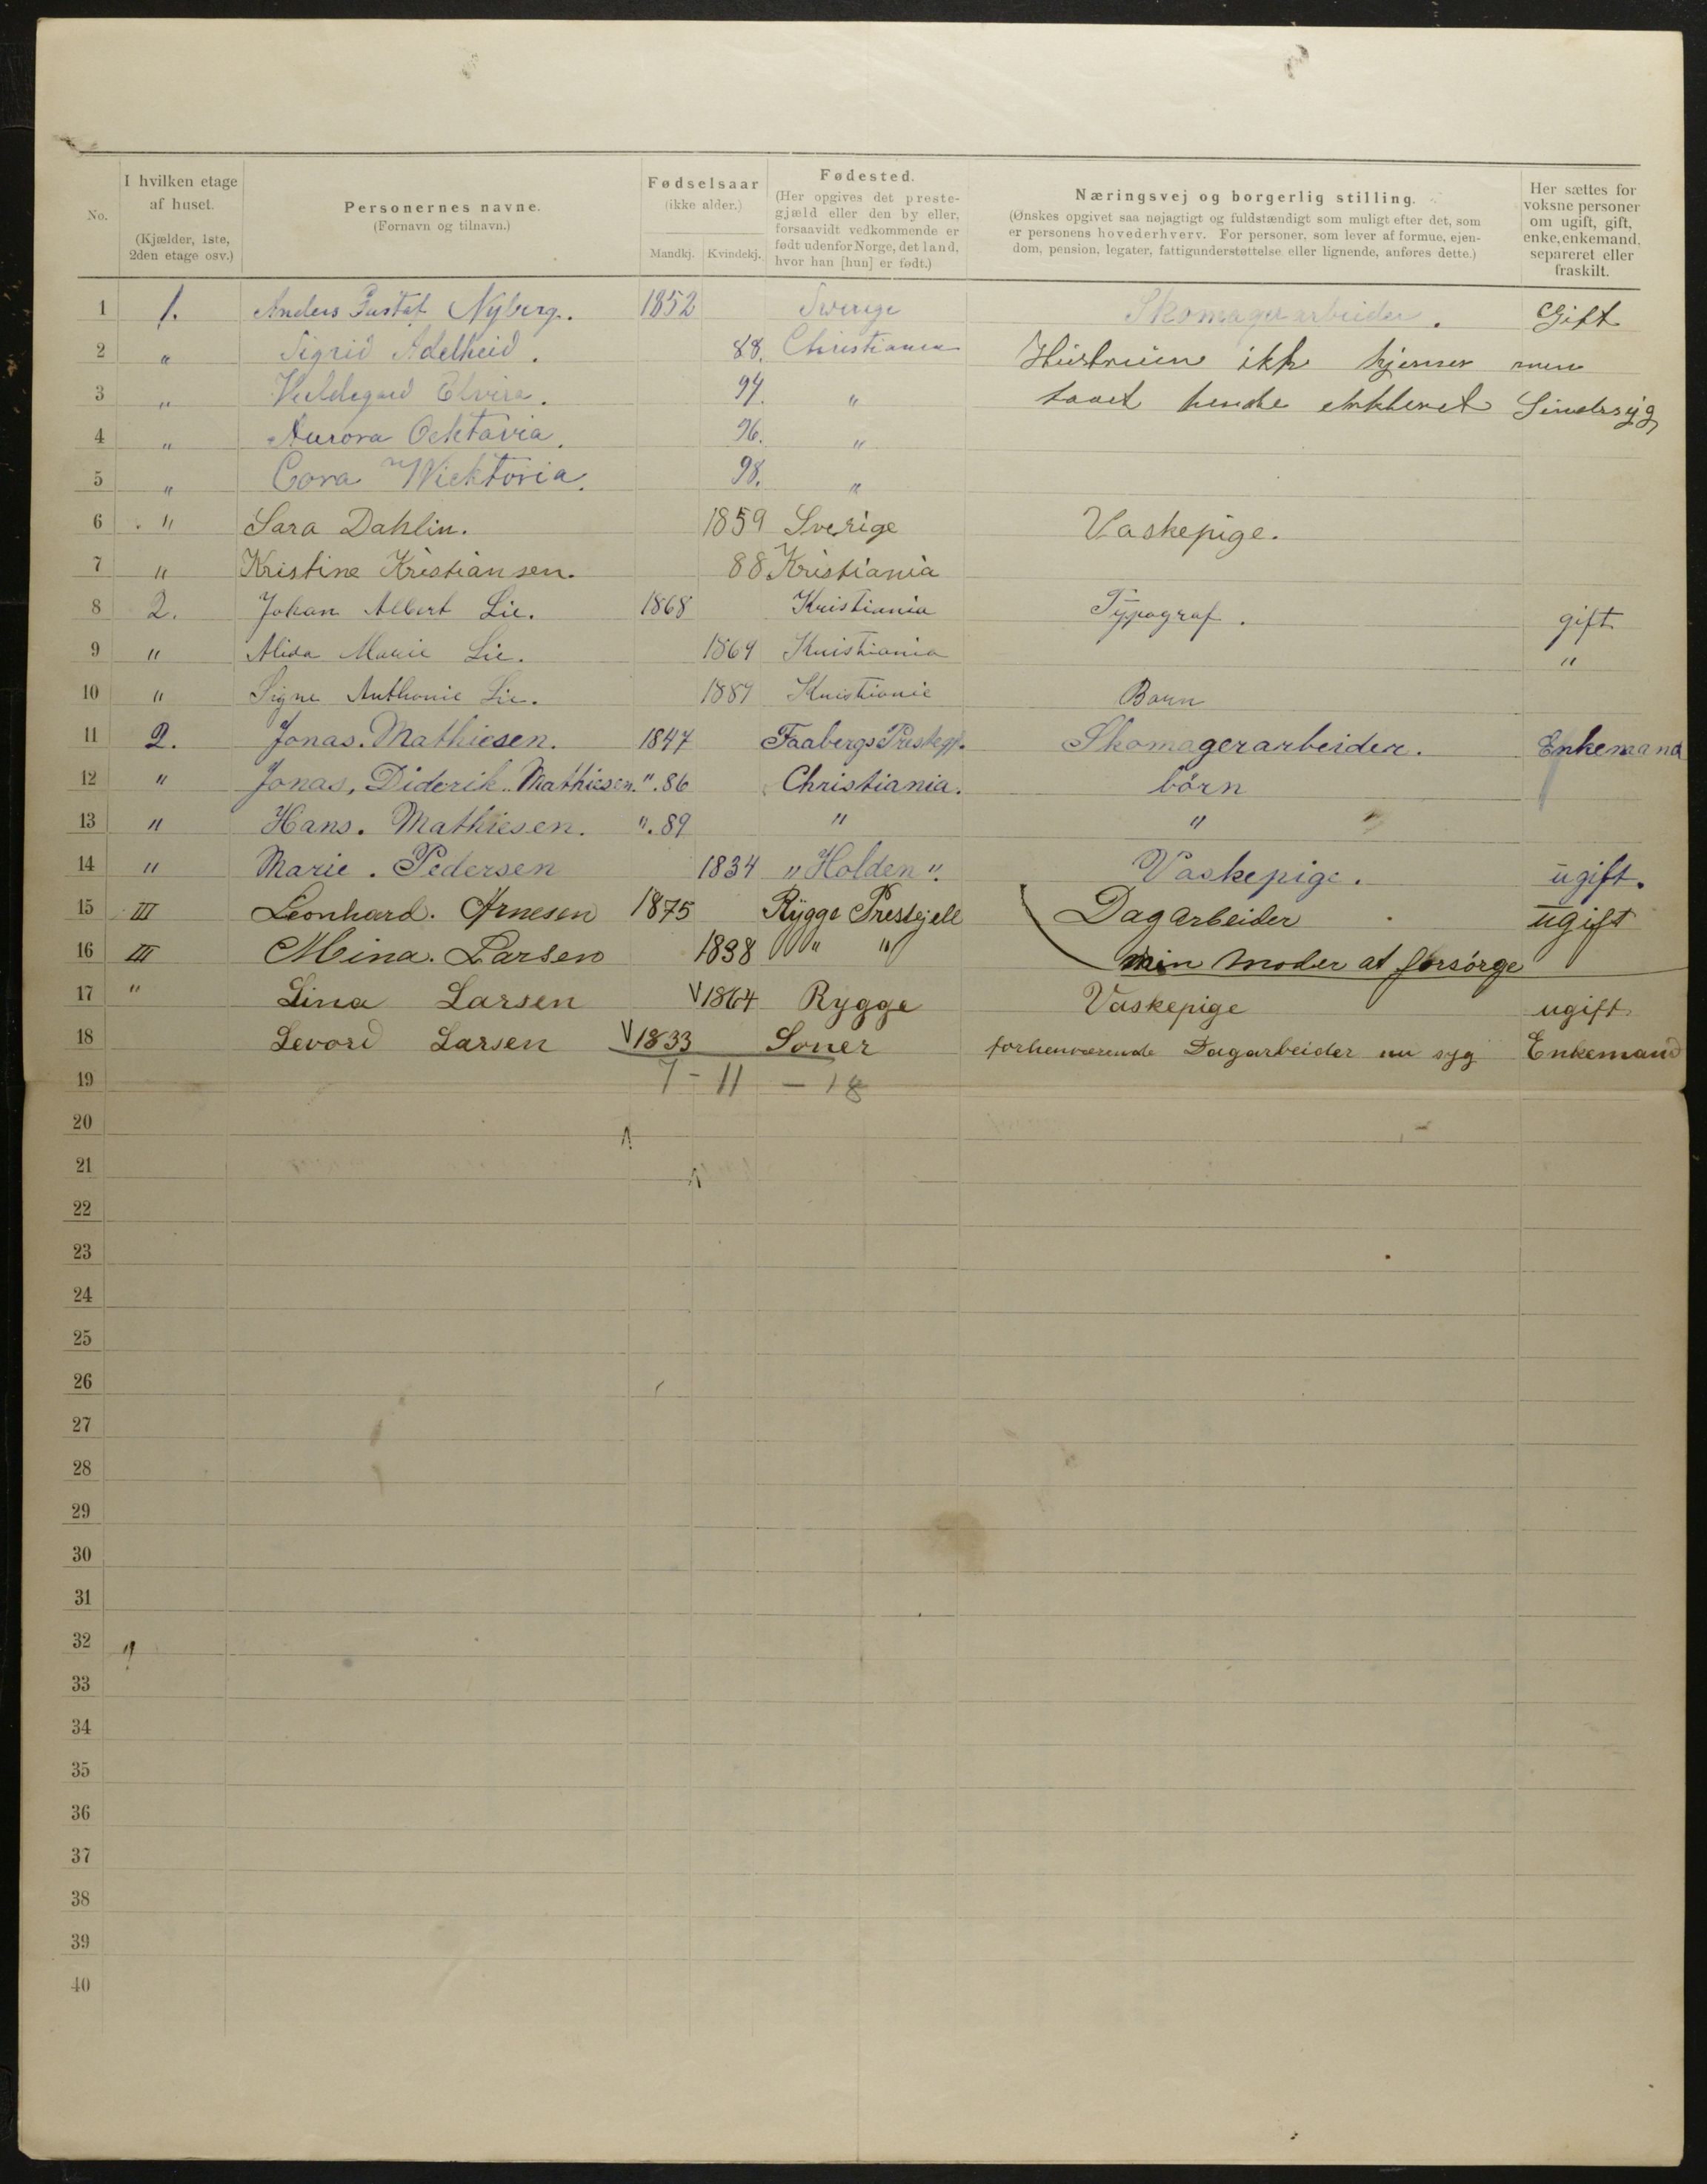 No.
I hvilken etage af huset. (Kjælder, 1ste, 2den etage osv.)
Personernes navne. (Fornavn og tilnavn.)
Fødselsaar (ikke alder.) Mandkj. Kvindekj.
Fødested. (Her opgives det prestegjæld eller den by eller, forsaavidt vedkommende er født udenfor Norge, det land, hvor han [hun] er født.)
Næringsvej og borgerlig stilling. (Ønskes opgivet saa nøjagtigt og fuldstændigt som muligt efter det, som er personens hovederhverv. For personer, som lever af formue, ejendom, pension, legater, fattigunderstøttelse eller lignende, anføres dette.)
Her sættes for voksne personer om ugift, gift, enke, enkemand, separeret eller fraskilt.
1 1. Anders Gustaf Nyberg. 1852 Swerige Skomagerarbeider. Gift
2 " Sigrid Adelheid. 88. Christiania Hustruen ikk hjemer men
3 " Elvira. 94. " Sindssyg
4 " Aurora Ocktavia. 96. "
5 " Cora Wicktoria. 98. "
6 " Sara Dahlin. 1859 Sverige Vaskepige.
7 " Kristine Kristiansen. 88 Kristiania
8 2. Johan Albert Lie. 1868 Kristiania Typograf. gift
9 " Alida Marie Lie. 1864 Kristiania "
10 " Signe Anthonie Lie. 1889 Kristianie Barn
11 2. Jonas. Mathiesen. 1847 Faabergs Prestegj. Skomagerarbeider. Enkemand
12 " Jonas, Diderik. Mathiesen. ". 86 Christiania. börn
13 " Hans. Mathiesen. ". 89 " "
14 " Marie. Pedersen 1834 "Holden". Vaskepige. ugift.
15 III Leonhard. Arnesen 1875 Rygge Prestejell Dagarbeider ugift
16 III Mina. Larsen 1838 " " min moder at forsörge
17 " Lina Larsen V 1864 Rygge Vaskepige ugift
18 Levord Larsen V 1833 Soner forhenværende Dagarbeider nu syg Enkemand
19 7 - 11 - 18
20
21
22
23
24
25
26
27
28
29
30
31
32 "
33
34
35
36
37
38
39
40